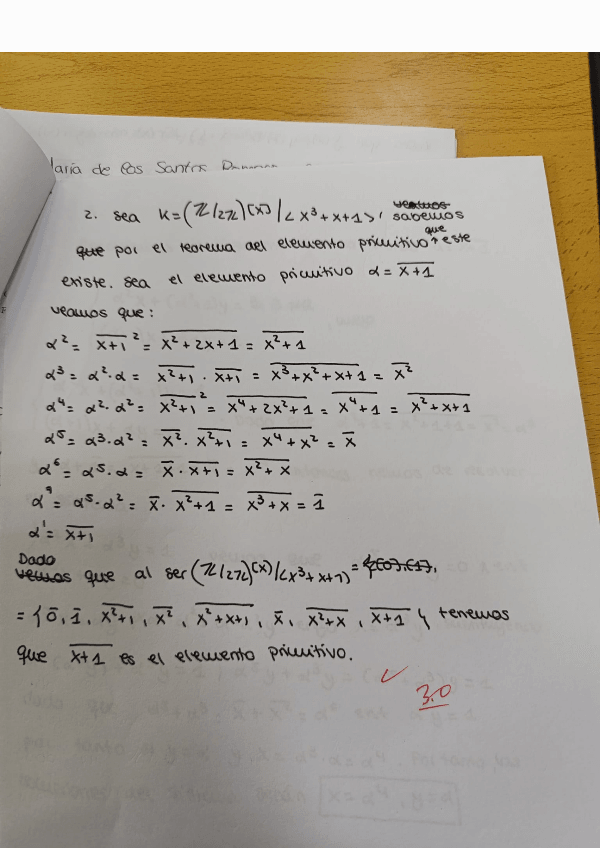 María de los Santos
2. sea K=(ℤ/2ℤ)[x]/<x³+x+1>, veamos sabemos
que por el teorema del elemento primitivo que este
existe. sea el elemento primitivo α = \overline{x+1}
veamos que:
α² = \overline{x+1}² = \overline{x²+2x+1} = \overline{x²+1}
α³ = α²·α = \overline{x²+1} · \overline{x+1} = \overline{x³+x²+x+1} = \overline{x²}
α⁴ = α²·α² = \overline{x²+1}² = \overline{x⁴+2x²+1} = \overline{x⁴+1} = \overline{x²+x+1}
α⁵ = α³·α² = \overline{x²}·\overline{x²+1} = \overline{x⁴+x²} = \overline{x}
α⁶ = α⁵·α = \overline{x}·\overline{x+1} = \overline{x²+x}
α⁷ = α⁵·α² = \overline{x}·\overline{x²+1} = \overline{x³+x} = \overline{1}
α¹ = \overline{x+1}
Dado
vemos que al ser (ℤ/2ℤ)[x]/<x³+x+1> = {0},{1},
= {\overline{0}, \overline{1}, \overline{x²+1}, \overline{x²}, \overline{x²+x+1}, \overline{x}, \overline{x²+x}, \overline{x+1}} tenemos
que \overline{x+1} es el elemento primitivo.
✓
3.0